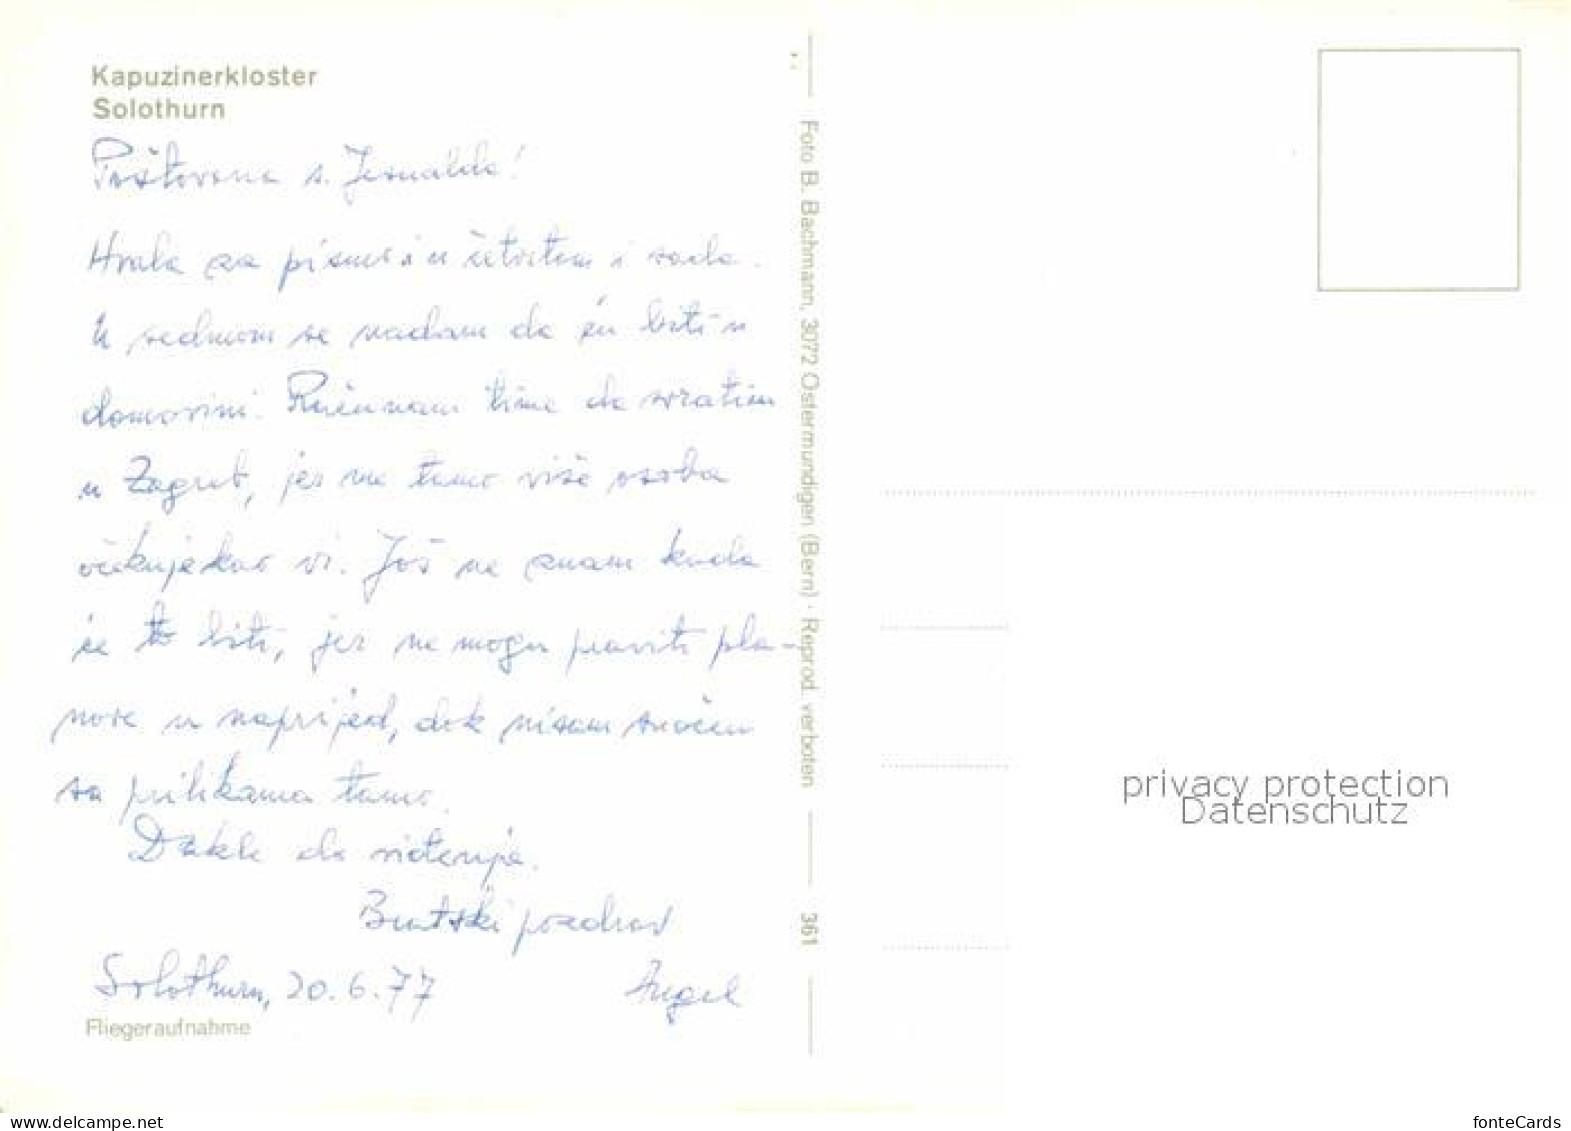 Kapuzinerkloster
Solothurn
Poštovana s. Jesualda!
Hvala za pismo i u četvrtom i sada.
U sedmom se nadam da ću biti u
domovini. Računam time da svratim
u Zagreb, jer me tamo više osoba
očekuje kao vi. Još ne znam kada
će to biti, jer ne mogu praviti pla-
nove u naprijed, dok nisam suočen
sa prilikama tamo.
Dakle do viđenja.
Bratski pozdrav
Solothurn, 20.6.77 Angel
Fliegeraufnahme
Foto B. Bachmann, 3072 Ostermundigen (Bern) · Reprod. verboten
361
privacy protection
Datenschutz
www.delcampe.net
fonteCards